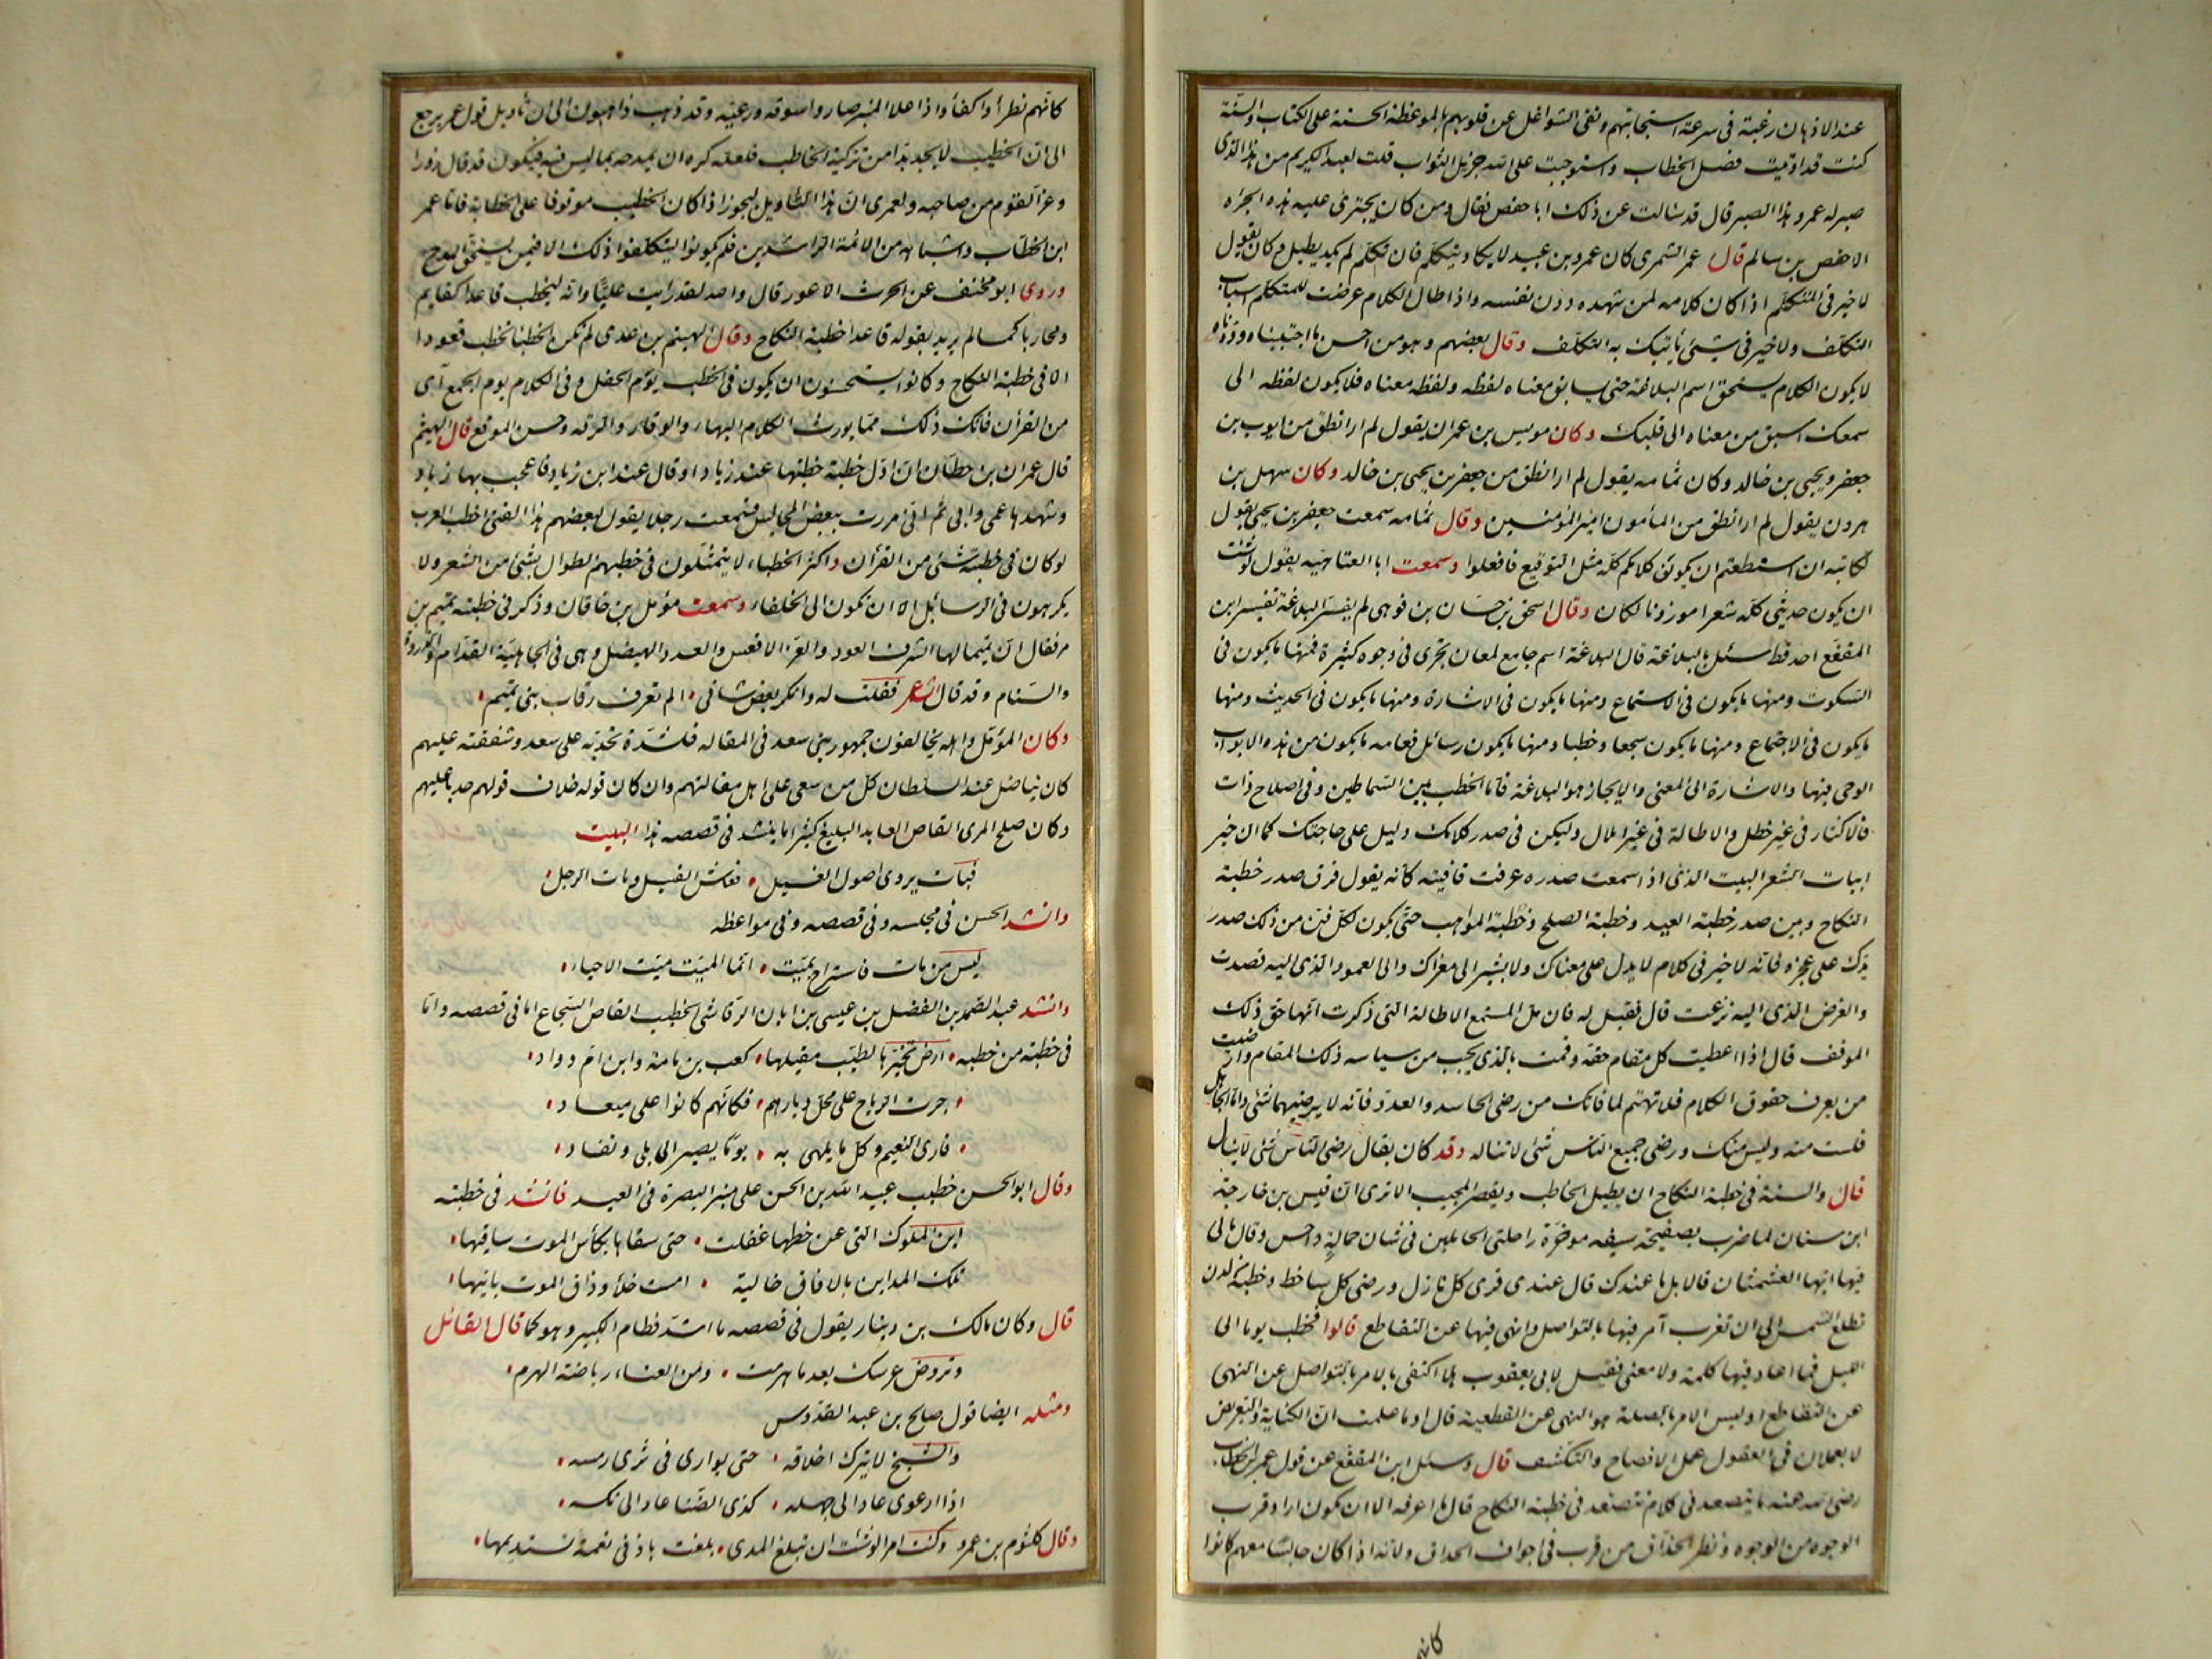 عند الاذهان رغبة فى سرعة استجابتهم ونفى الشواغل عن قلوبهم بالموعظة الحسنة على الكتاب والسنة
كنت قد اوتيت فصل الخطاب واستوجبت على الله جزيل الثواب قلت لعبد الكريم من هذا الذى
صبر له عمرو هذا الصبر قال قد سالت عن ذلك ابا حفص فقال ومن كان يجترئ عليه هذه الجرأة
الا حفص بن سالم قال عمر الشمرى كان عمرو بن عبيد لا يكاد يتكلم فان تكلم لم يكد يطيل وكان يقول
لا خير فى المتكلم اذا كان كلامه لمن شهده دون نفسه واذا طال الكلام عرضت للمتكلم اسباب
التكلف ولا خير فى شئ يأتيك به التكلف وقال بعضهم وهو من احسن ما اجتبيناه ودوناه
لا يكون الكلام يستحق اسم البلاغة حتى يسابق معناه لفظه ولفظه معناه فلا يكون لفظه الى
سمعك اسبق من معناه الى قلبك وكان مويس بن عمران يقول لم ار انطق من ايوب بن
جعفر ويحيى بن خالد وكان ثمامه يقول لم ار انطق من جعفر بن يحيى بن خالد وكان سهل بن
هرون يقول لم ار انطق من المأمون امير المؤمنين وقال ثمامه سمعت جعفر بن يحيى يقول
لكتابه ان استطعتم ان يكون كلامكم كله مثل التوقيع فافعلوا وسمعت ابا العتاهيه يقول لو شئت
ان يكون حديثى كله شعرا موزونا لكان وقال اسحق بن حسان بن فوهى لم يفسر البلاغة تفسير ابن
المقفع احد قط سئل ما البلاغة قال البلاغة اسم جامع لمعان تجرى فى وجوه كثيرة فمنها ما يكون فى
السكوت ومنها ما يكون فى الاستماع ومنها ما يكون فى الاشارة ومنها ما يكون فى الحديث ومنها
ما يكون فى الاجتماع ومنها ما يكون سجعا وخطبا ومنها ما يكون رسائل فعامه ما يكون من هذه الابواب
الوحى فيها والاشارة الى المعنى والايجاز هو البلاغة فاما الخطب بين السماطين وفى اصلاح ذات
فالاكثار فى غير خطل والاطالة فى غير املال وليكن فى صدر كلامك دليل على حاجتك كما ان خير
ابيات الشعر البيت الذى اذا سمعت صدره عرفت قافيته كانه يقول فرق صدر خطبة
النكاح وبين صدر خطبة العيد وخطبة الصلح وخطبة المواهب حتى يكون لكل فن من ذلك صدر
يدلك على عجزه فانه لا خير فى كلام لا يدل على معناك ولا يشير الى مغزاك والى العمود الذى اليه قصدت
والغرض الذى اليه نزعت قال فقيل له فان مل المستمع الاطالة التى ذكرت انها حق ذلك
الموقف قال اذا اعطيت كل مقام حقه وقمت بالذى يجب من سياسه ذلك المقام وارضيت
من يعرف حقوق الكلام فلا تهتم لما فاتك من رضى الحاسد والعدو فانه لا يرضيهما شئ واما الجاهل
فلست منه وليس منك ورضى جميع الناس شئ لا تناله وقد كان يقال رضى الناس شئ لا ينال
قال والسنة فى خطبة النكاح ان يطيل الخاطب ويقصر المجيب الا ترى ان قيس بن خارجة
ابن سنان لما ضرب بصفيحة سيفه مؤخرة راحلتى الحاملين فى شان حمالة داحس وقال مالى
فيها ايها العشمتان قالا بل ما عندك قال عندى قرى كل نازل ورضى كل ساخط وخطبة من لدن
تطلع الشمس الى ان تغرب آمر فيها بالتواصل وانهى فيها عن التقاطع قالوا فخطب يوما الى
الليل فما اعاد فيها كلمة ولا معنى فقيل لابى يعقوب هلا اكتفى بالامر بالتواصل عن النهى
عن التقاطع او ليس الامر بالصلة هو النهى عن القطيعة قال او ما علمت ان الكناية والتعريض
لا يعملان فى العقول عمل الافصاح والتكشف قال وسئل ابن المقفع عن قول عمر بن الخطاب
رضى الله عنه ما يتصعدنى كلام كما تتصعدنى خطبة النكاح قال ما اعرفه الا ان يكون اراد قرب
الوجوه من الوجوه ونظر الحداق من قرب فى اجواف الحداق ولانه اذا كان جالسا معهم كانوا
كانهم
كانهم نظراء واكفاء واذا علا المنبر صاروا سوقه ورعيته وقد ذهب ذاهبون الى ان تأويل قول عمر يرجع
الى ان الخطيب لا يجد بدا من تزكية الخاطب فلعله كره ان يمدحه بما ليس فيه فيكون قد قال زورا
وغر القوم من صاحبه ولعمرى ان هذا التأويل ليجوز اذا كان الخطيب موقوفا على الخطابة فاما عمر
ابن الخطاب واشباهه من الائمة الراشدين فلم يكونوا ليتكلفوا ذلك الا فيمن يستحق المدح
وروى ابو مخنف عن الحرث الاعور قال والله لقد رايت عليا وانه ليخطب قاعدا كقايم
ومحاربا كمسالم يريد بقوله قاعدا خطبة النكاح وقال الهيثم بن عدى لم تكن الخطبا تخطب قعودا
الا فى خطبة النكاح وكانوا يستحسنون ان يكون فى الخطب يوم الحفل وفى الكلام يوم الجمع آى
من القرأن فان ذلك مما يورث الكلام البهاء والوقار والرقه وحسن الموقع قال الهيثم
قال عمران بن حطان ان اول خطبة خطبتها عند زياد او قال عند ابن زياد فاعجب بها زياد
وشهدها عمى وابى ثم انى مررت ببعض المجالس فسمعت رجلا يقول لبعضهم هذا الفتى اخطب العرب
لو كان فى خطبته شئ من القرأن واكثر الخطباء لا يتمثلون فى خطبهم الطوال بشئ من الشعر ولا
يكرهونه فى الرسائل الا ان تكون الى الخلفاء وسمعت مؤمل بن خاقان وذكر فى خطبته تميم بن
مر فقال ان تميما لها الشرف العود والعز الاقعس والعدد الهيضل وهى فى الجاهلية القدام والذروة
والسنام وقد قال الشاعر فقلت له وانكر بعض شانى الم تعرف رقاب بنى تميم
وكان المؤمل واهله يخالفون جمهور بنى سعد فى المقاله فلشدة تحدبه على سعد وشفقته عليهم
كان يناضل عند السلطان كل من سعى على اهل مقالتهم وان كان قوله خلاف قولهم حدبا عليهم
وكان صلح المرى القاص العابد البليغ كثيرا ما ينشد فى قصصه هذا البيت
فبات يروى اصول الفسيل فعاش الفسيل ومات الرجل
وانشد الحسن فى مجلسه وفى قصصه وفى مواعظه
ليس من مات فاستراح بميت انما الميت ميت الاحياء
وانشد عبد الصمد بن الفضل بن عيسى بن ابان الرقاشى الخطيب القاص السجاع اما فى قصصه واما
فى خطبته من خطبه ارض تخيرها لطيب مقيلها كعب بن مامة وابن ام دواد
جرت الرياح على محل ديارهم فكانهم كانوا على ميعاد
فارى النعيم وكل ما يلهى به يوما يصير الى بلى ونفاد
وقال ابو الحسن خطب عبيد الله بن الحسن على منبر البصرة فى العيد فانشد فى خطبته
اين الملوك التى عن خطها غفلت حتى سقاها بكأس الموت ساقيها
تلك المداين بالافاق خالية امست خلاء وذاق الموت بانيها
قال وكان مالك بن دينار يقول فى قصصه ما اشد فطام الكبير وهو كما قال القائل
وتروض عرسك بعد ما هرمت ومن العناء رياضة الهرم
ومثله ايضا قول صالح بن عبد القدوس
والشيخ لا يترك اخلاقه حتى يوارى فى ثرى رمسه
اذا ارعوى عاد الى جهله كذى الضنا عاد الى نكسه
وقال كلثوم بن عمرو وكنت امرأ لو شئت ان تبلغ المدى بلغت باذنى نعمة تستديمها